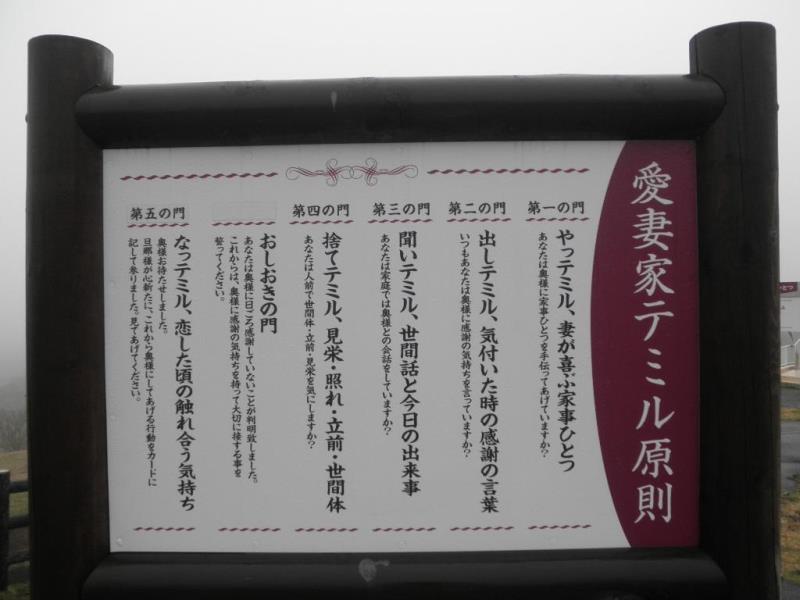 愛妻家テミル原則
第一の門
やっテミル、妻が喜ぶ家事ひとつ
あなたは奥様に家事ひとつを手伝ってあげていますか？
第二の門
出しテミル、気付いた時の感謝の言葉
いつもあなたは奥様に感謝の気持ちを言っていますか？
第三の門
聞いテミル、世間話と今日の出来事
あなたは家庭では奥様との会話をしていますか？
第四の門
捨てテミル、見栄・照れ・立前・世間体
あなたは人前で世間体・立前・見栄を気にしますか？
おしおきの門
あなたは奥様に日ごろ感謝していないことが判明致しました。
これからは、奥様に感謝の気持ちを持って大切に接する事を
誓ってください。
第五の門
なっテミル、恋した頃の触れ合う気持ち
奥様お待たせしました。
旦那様が心新たに、これから奥様にしてあげる行動をカードに
記して参りました。見てあげてください。